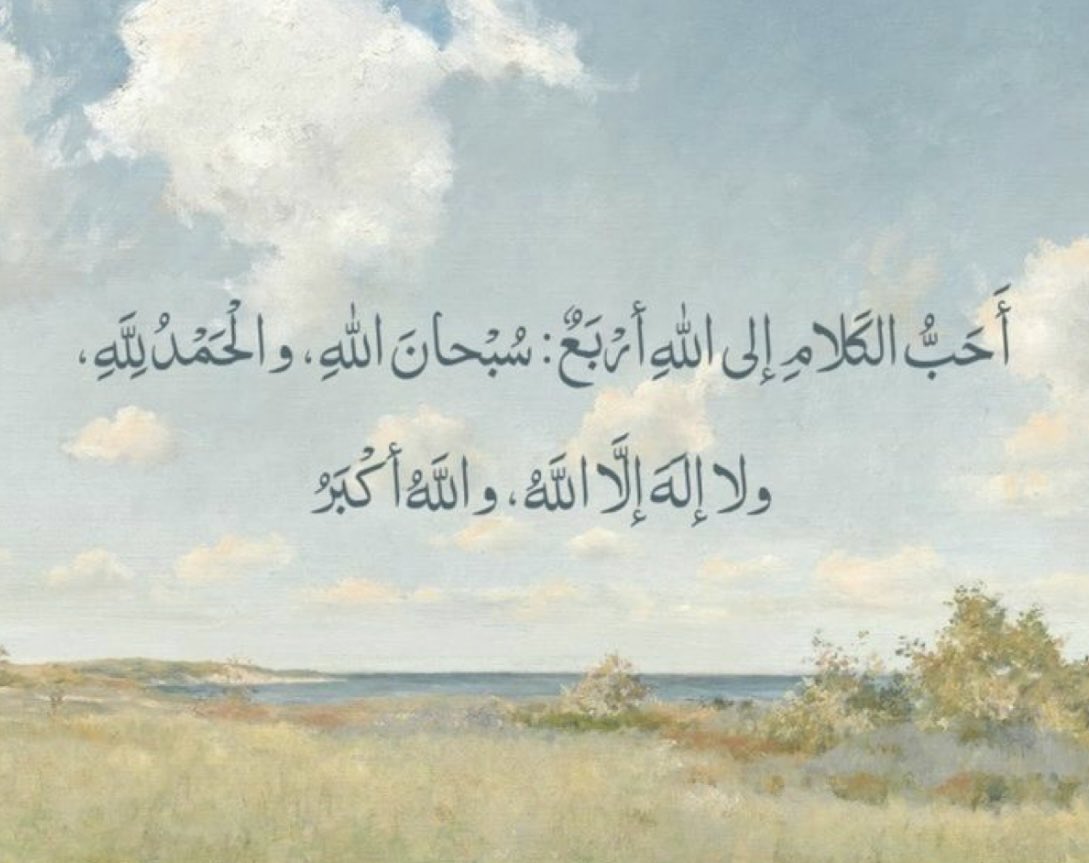 أَحَبُّ الكَلامِ إلى اللهِ أرْبَعٌ: سُبْحانَ اللهِ، والْحَمْدُ لِلَّهِ،
ولا إلَهَ إلَّا اللَّهُ، واللَّهُ أكْبَرُ